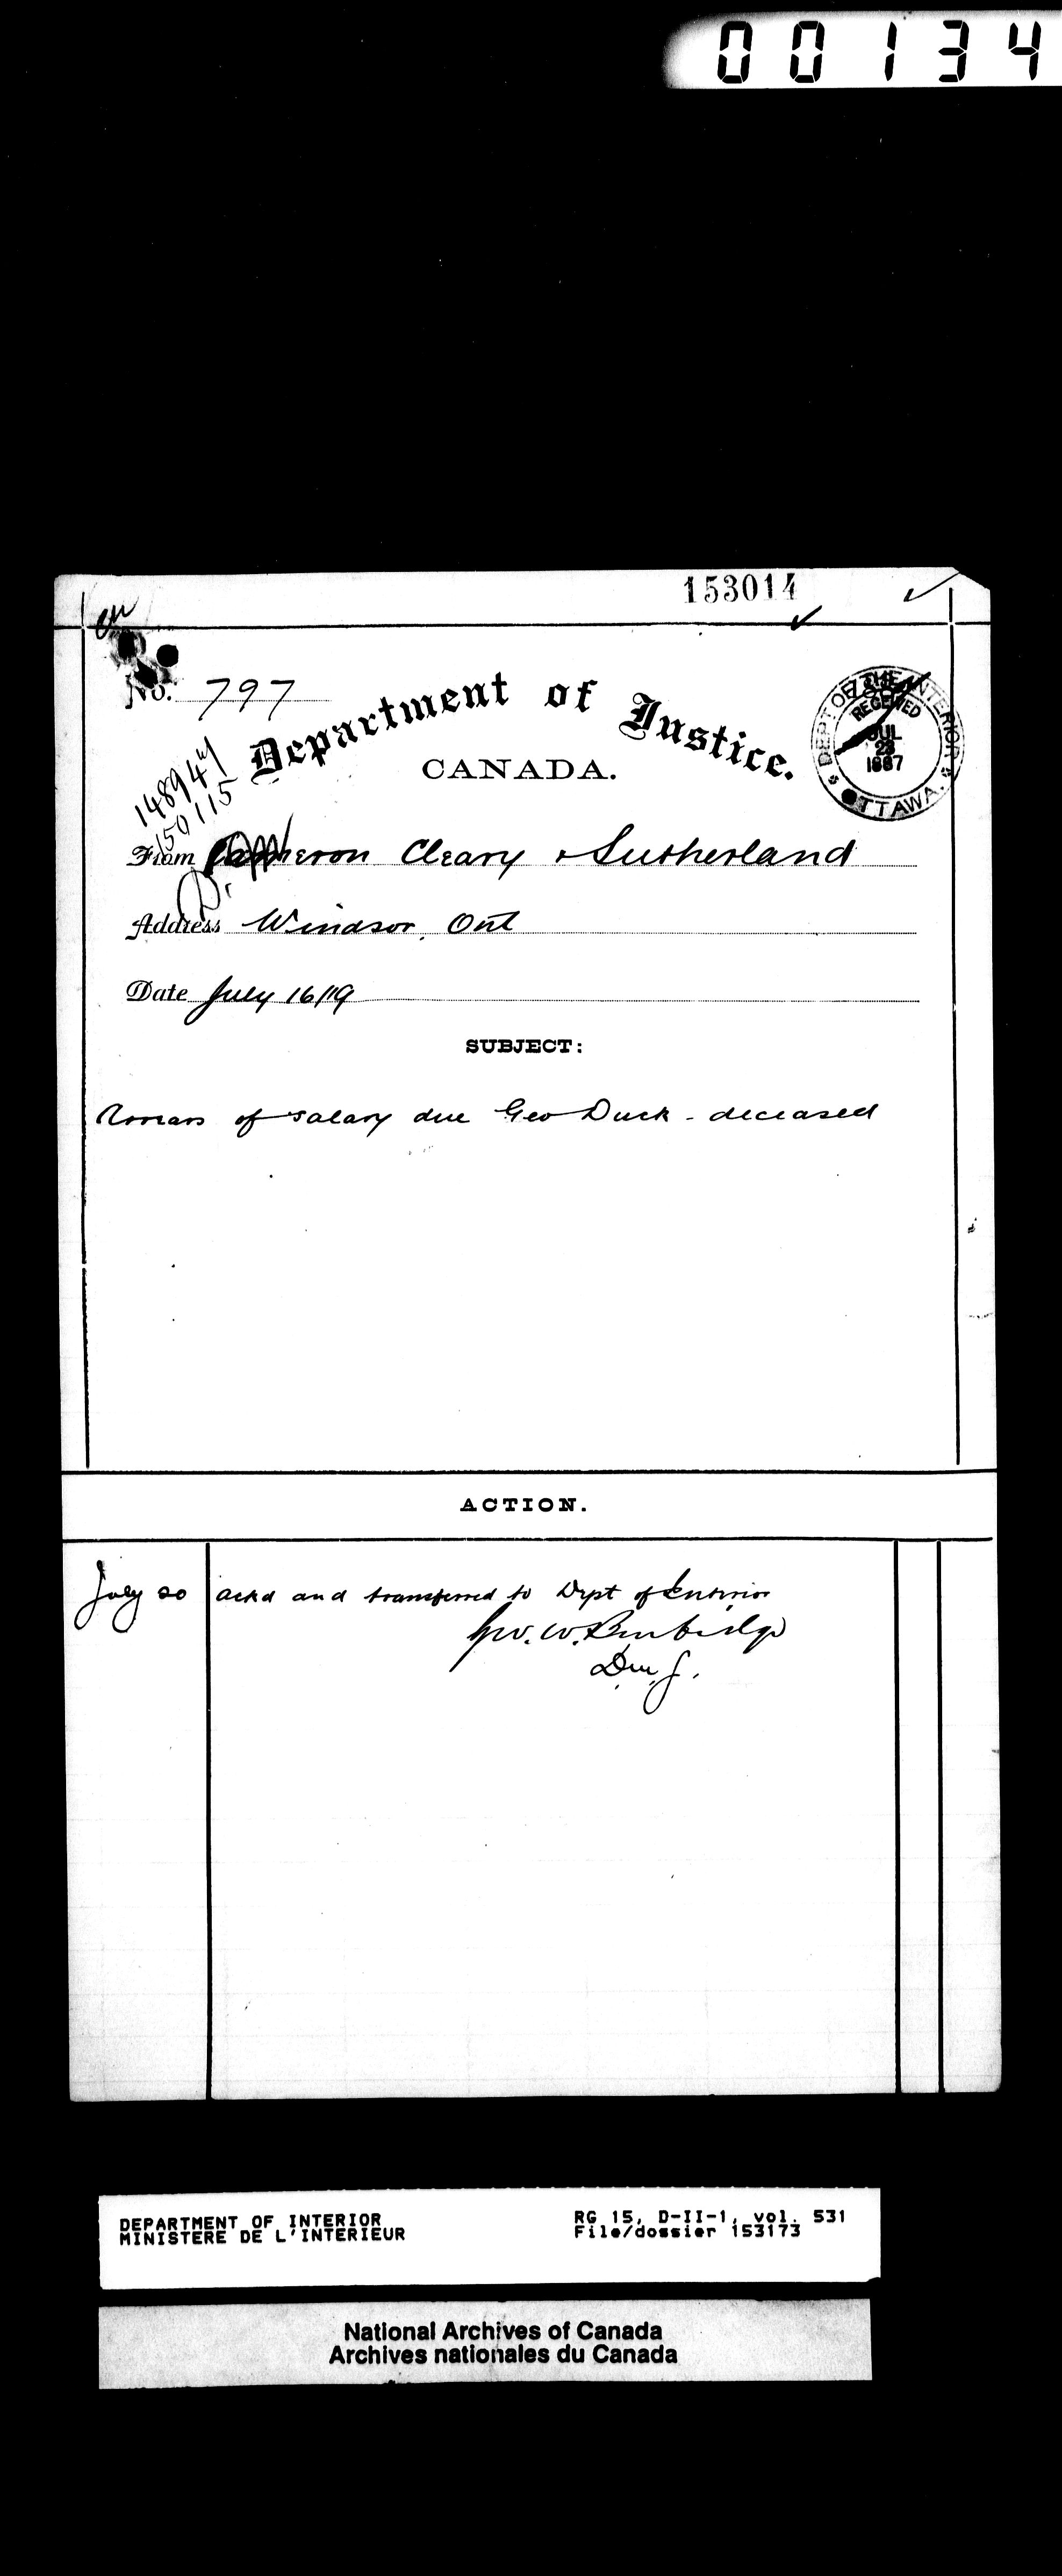 00134
153014
No. 797
Department of Justice.
CANADA.
DEPT OF THE INTERIOR
RECEIVED
JUL
23
1887
OTTAWA.
148947
150115
From Cameron Cleary & Sutherland
Address Windsor. Ont
Date July 16/19
SUBJECT:
Arrears of salary due Geo Duck - deceased
ACTION.
July 20 ackd and transferred to Dept of Interior
Geo. W. Burbidge
D.M.J.
DEPARTMENT OF INTERIOR
MINISTERE DE L'INTERIEUR
RG 15, D-II-1, vol. 531
File/dossier 153173
National Archives of Canada
Archives nationales du Canada